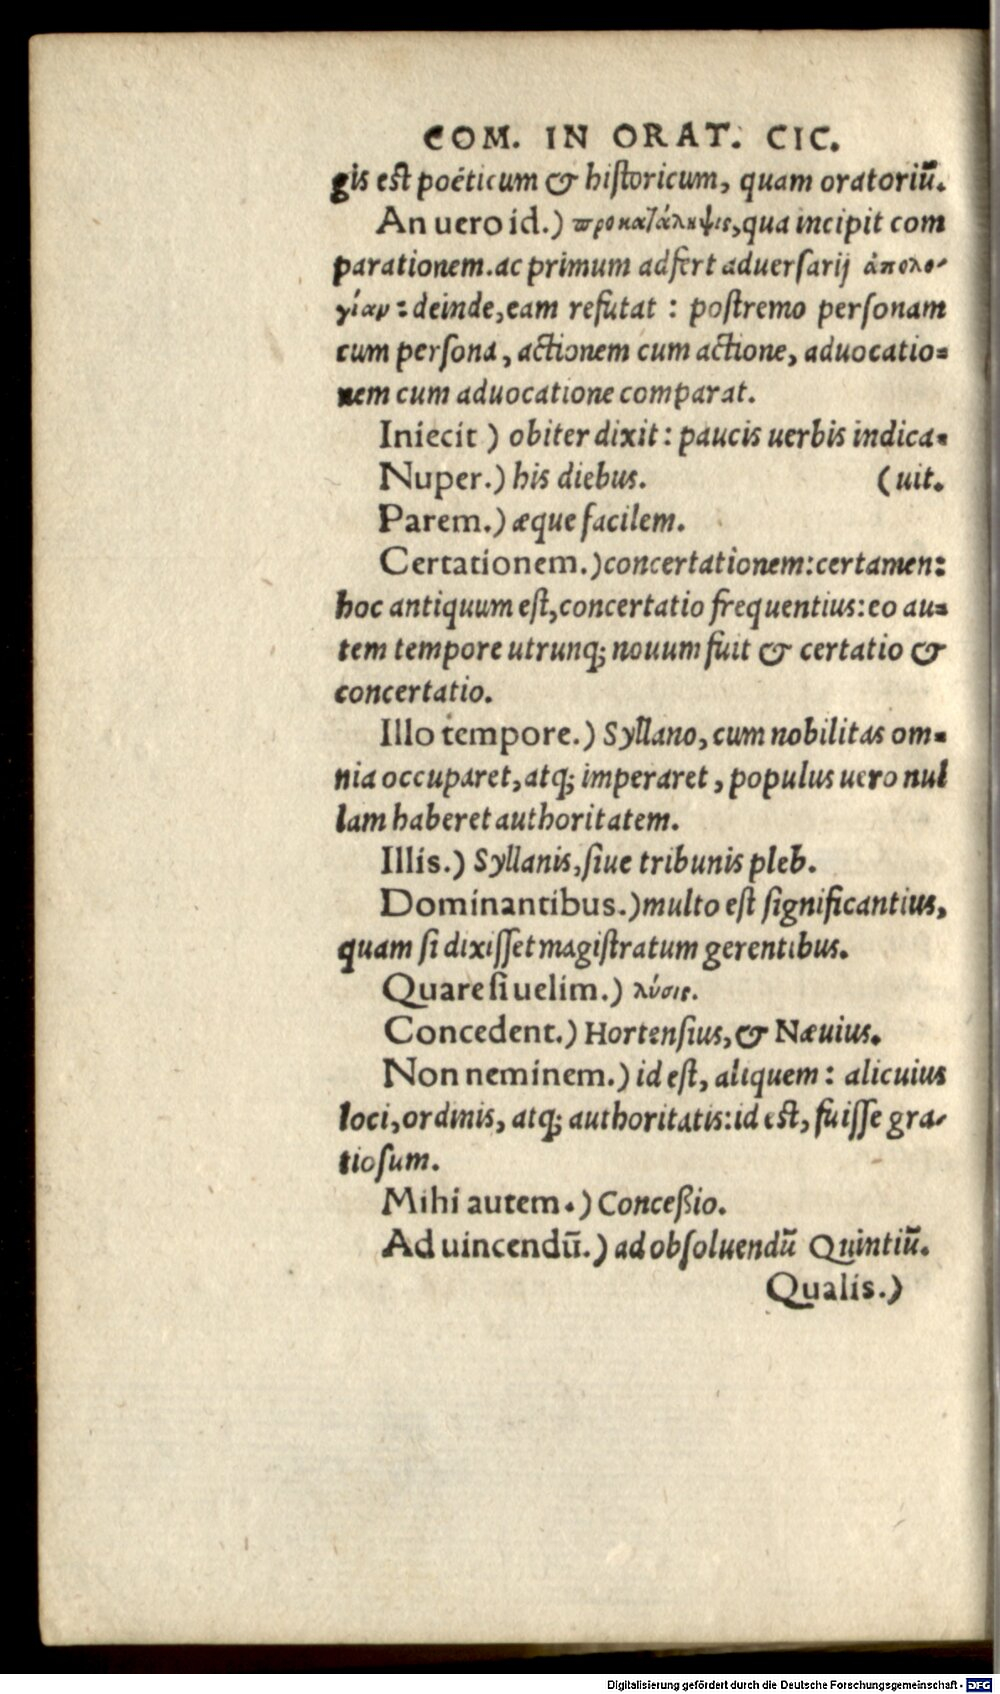 COM. IN ORAT. CIC.
gis est poëticum & historicum, quam oratoriū.
An uero id.) προκατάληψις, qua incipit com
parationem. ac primum adfert aduersarij ἀπολο-
γίαν: deinde, eam refutat: postremo personam
cum persona, actionem cum actione, aduocatio=
nem cum aduocatione comparat.
Iniecit) obiter dixit: paucis uerbis indica=
Nuper.) his diebus. (uit.
Parem.) æque facilem.
Certationem.) concertationem: certamen:
hoc antiquum est, concertatio frequentius: eo au=
tem tempore utrunq; nouum fuit & certatio &
concertatio.
Illo tempore.) Syllano, cum nobilitas om=
nia occuparet, atq; imperaret, populus uero nul
lam haberet authoritatem.
Illis.) Syllanis, siue tribunis pleb.
Dominantibus.) multo est significantius,
quam si dixisset magistratum gerentibus.
Quare si uelim.) λύσις.
Concedent.) Hortensius, & Næuius.
Non neminem.) id est, aliquem: alicuius
loci, ordinis, atq; authoritatis: id est, fuisse gra-
tiosum.
Mihi autem.) Conceßio.
Ad uincendū.) ad obsoluendū Quintiū.
Qualis.)
Digitalisierung gefördert durch die Deutsche Forschungsgemeinschaft - DFG